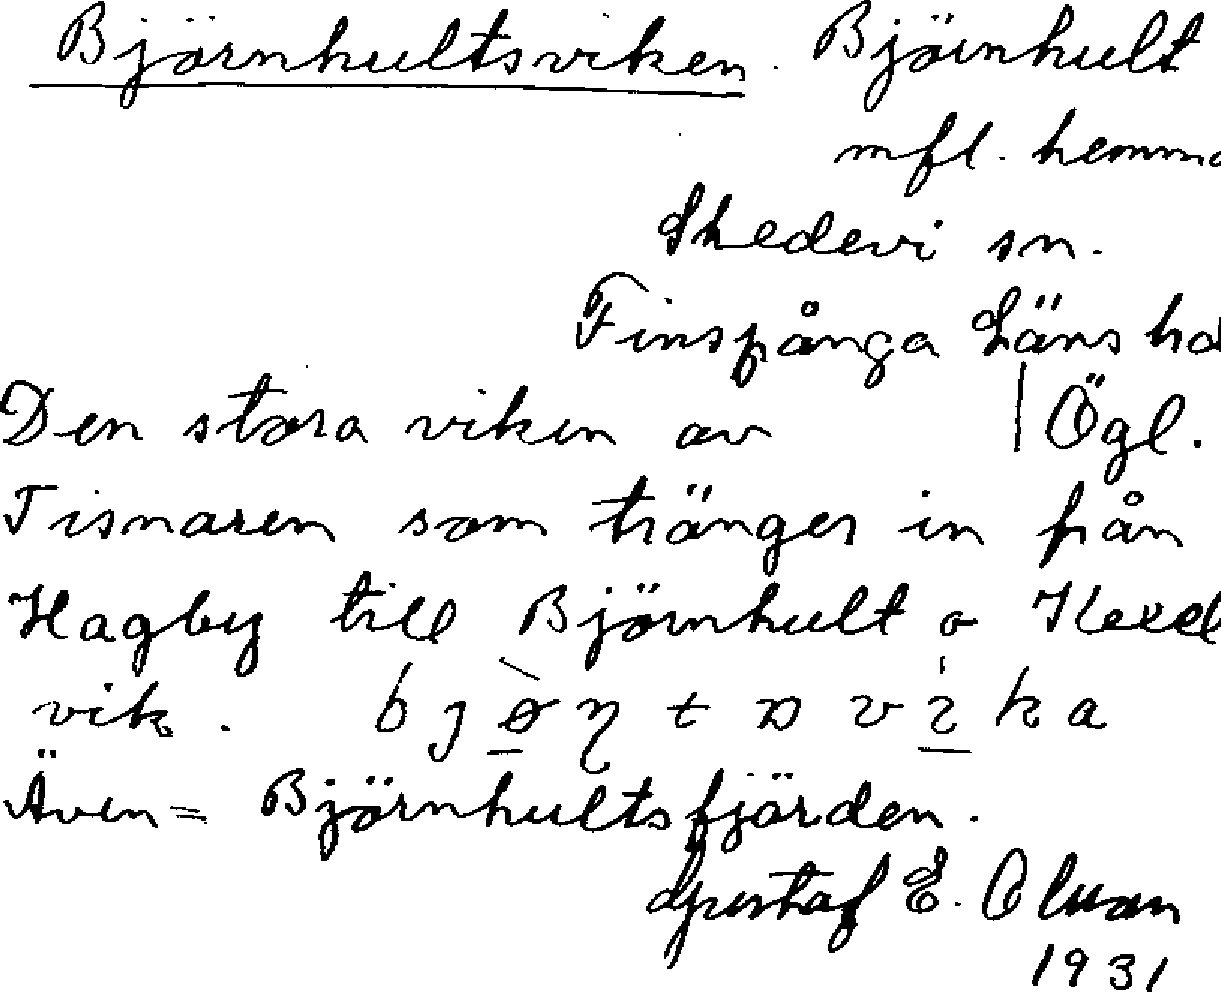 Björnhultsviken. Björnhult
mfl. hemma
Skedevi sn.
Finspånga Läns had
Den stora viken av | Ögl.
Tisnaren som tränger in från
Hagby till Björnhult o
vik.
Även = Björnhultsfjärden.
Gustaf E. Olsson
1931